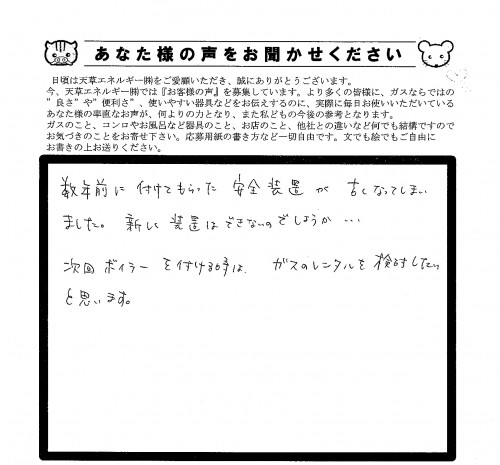 あなた様の声をお聞かせください
日頃は天草エネルギー㈱をご愛願いただき、誠にありがとうございます。
今、天草エネルギー㈱では『お客様の声』を募集しています。より多くの皆様に、ガスならではの
”良さ”や”便利さ”、使いやすい器具などをお伝えするのに、実際に毎日お使いいただいている
あなた様の率直なお声が、何よりの力となり、また私どもの今後の参考となります。
ガスのこと、コンロやお風呂など器具のこと、お店のこと、他社との違いなど何でも結構ですので
お気づきのことをお寄せ下さい。応募用紙の書き方など一切自由です。文でも絵でもご自由に
お書きの上お送りください。
数年前に付けてもらった安全装置が古くなってしまい
ました。新しい装置はできないのでしょうか…
次回ボイラーを付ける時は、ガスのレンタルを検討したい
と思います。